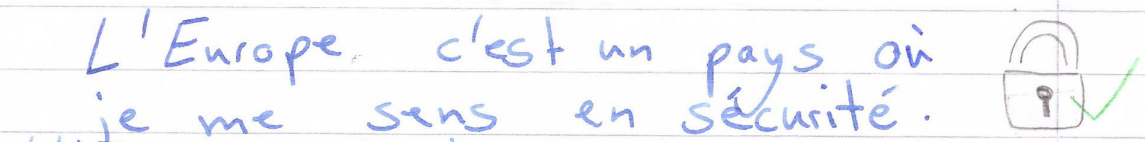 L'Europe c'est un pays où
je me sens en sécurité.